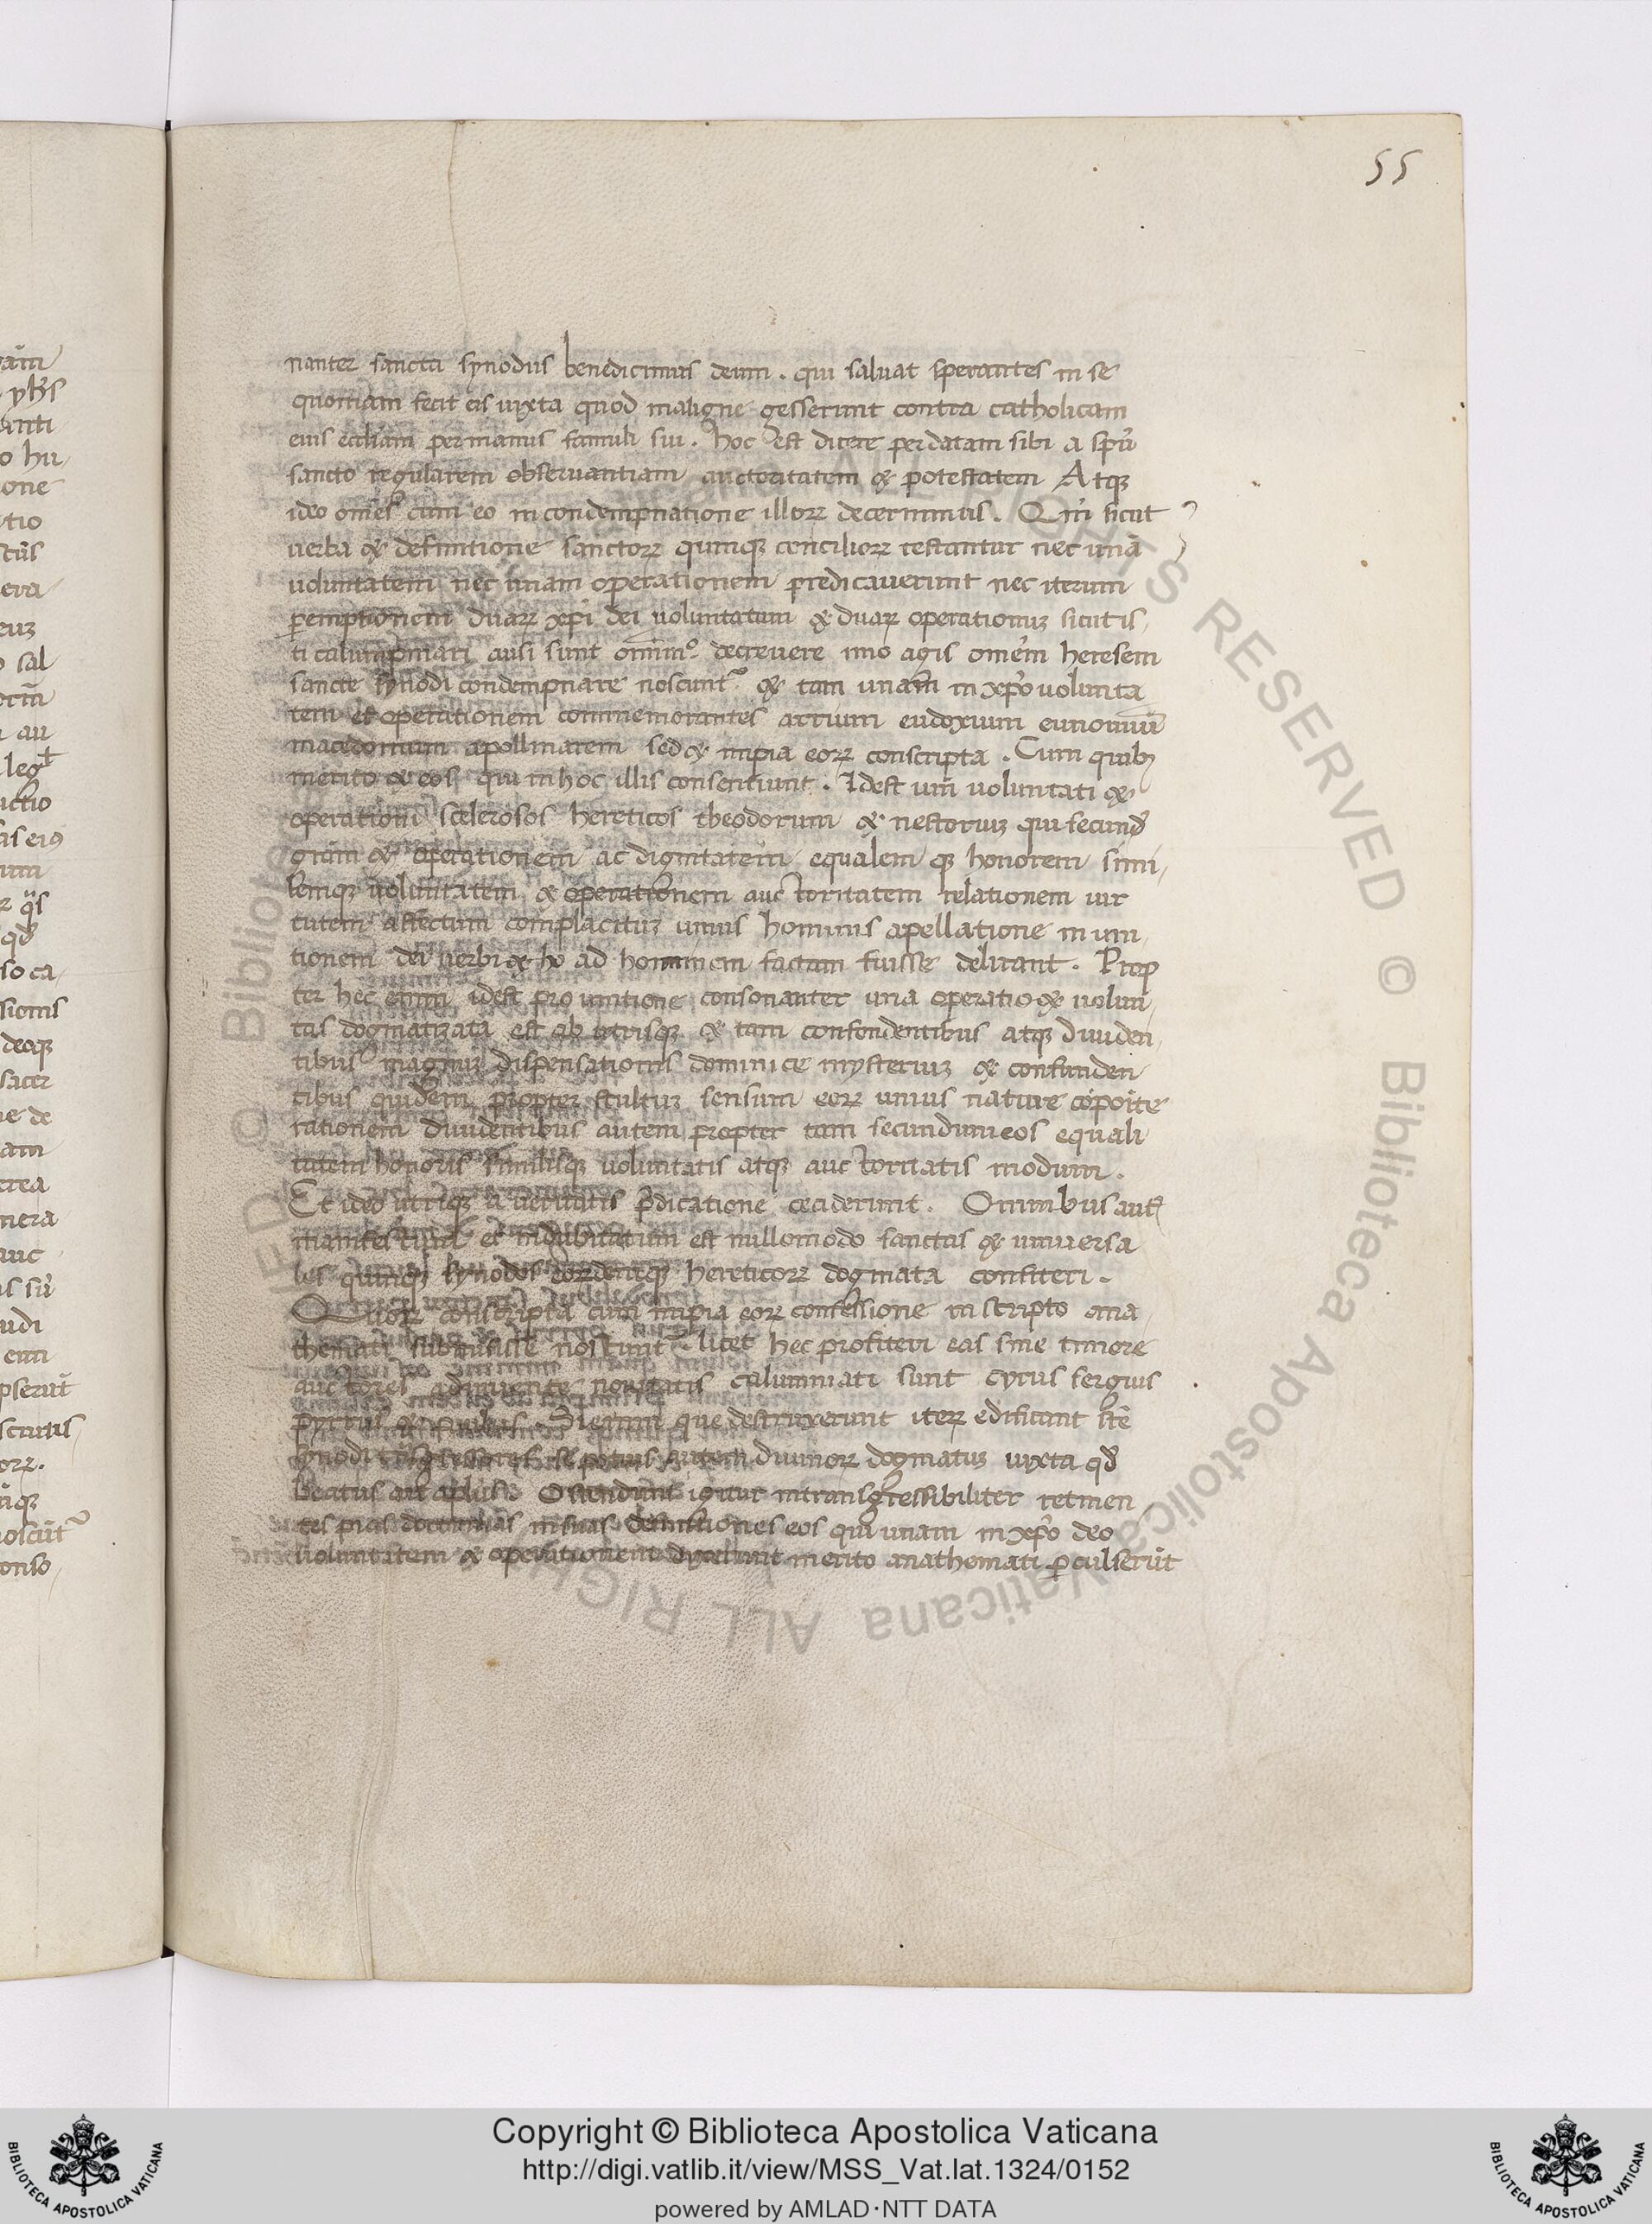 55
nanter sancta synodus benedicimus deum . qui saluat sperantes in se
quoniam fecit eis iuxta quod maligne gesserunt contra catholicam
eius eccliam per manus famuli sui . hoc est dicere per datam sibi a spũ
sancto regularem obseruantiam auctoritatem & potestatem Atqꝫ
ideo om̃es cum eo in condempnatione illorꝝ decernimus . Qm̃ sicut
uerba & definitione sanctorꝝ quinqꝫ conciliorꝝ testantur nec unã
uoluntatem nec unam operationem predicauerunt nec iterum
ꝑemptionem duarꝝ xp̃i dei uoluntatum & duarꝝ operationuꝫ sicut is
ti calumpniari ausi sunt omĩnº decreuere imo agis om̃em heresem
sancte synodi condempnare noscunt᷑ & tam unam in xp̃o uolunta
tem et operationem commemorantes arrium eudoxium eunomiũ
macedonium apollinarem sed & impia eorꝝ conscripta . Cum quibꝫ
merito & eos qui in hoc illis consentiunt . Idest uni uoluntati &
operationi scelerosos hereticos theodorum & nestoriuꝫ qui secund̃
gr̃am & operationem ac dignitatem equalem qꝫ honorem simi
lemqꝫ uoluntatem & operationem auctoritatem relationem uir
tutem affectum complacituꝫ unius hominis apellatione in uni
tionem dei uerbi & ho ad hominem factam fuisse delirant . Prop
ter hec enim idest pro unitione consonanter una operatio & uolun
tas dogmatizata est ab utrisqꝫ & tam confondentibus atqꝫ diuiden
tibus magnuꝫ dispensationis dominice mysteriuꝫ & confunden
tibus quidem propter stultuꝫ sensum eorꝝ unius nature cõpoite
rationem diuidentibus autem propter tam secundum eos equali
tatem honoris similisqꝫ uoluntatis atqꝫ auctoritatis modum .
Et ideo utriqꝫ a ueritatis p̃dicatione ceciderunt . Omnibus aut̃
manifestum et indubitatum est nullomodo sanctas & uniuersa
les quinqꝫ synodos eorꝝdemqꝫ hereticorꝝ dogmata confiteri .
Quorꝝ conscripta cum impia eorꝝ confessione in scripto ana
themati submisisse noscunt᷑ . licet hec profiteri eas sine timore
auctores adinuente nouitatis calumniati sunt cyrus sergius
pyrrus & Si enim que destruxerunt iterꝝ edificant scẽ
synodi potius autem diuinorꝝ dogmatuꝫ iuxta qd̃
beatus ait Ostendunt igitur intransgressibiliter retinen
tes pias doctrinas in suas definitiones eos qui unam in xp̃o deo
uoluntatem & operationem dixerunt merito anathemati ꝑculserũt
Copyright © Biblioteca Apostolica Vaticana
http://digi.vatlib.it/view/MSS_Vat.lat.1324/0152
powered by AMLAD·NTT DATA